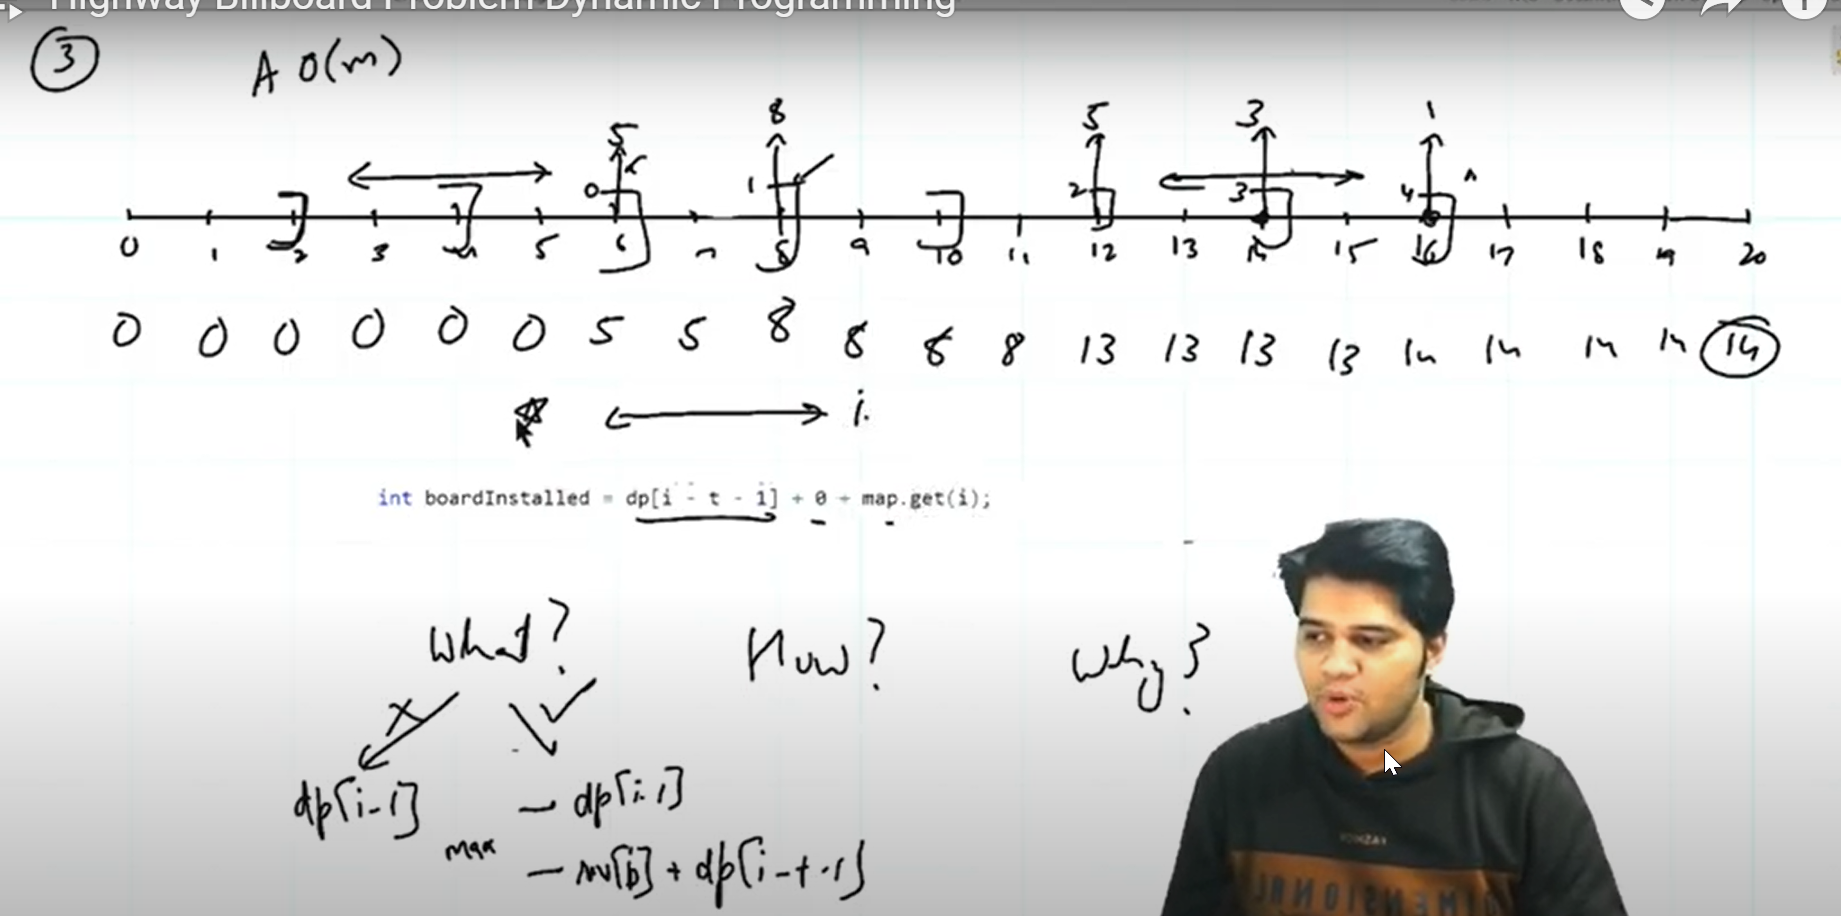 Highway Billboard Problem Dynamic Programming
3 A O(m)
5 8 5 3 1
0 1 2 3 4
0 1 2 3 4 5 6 7 8 9 10 11 12 13 14 15 16 17 18 19 20
0 0 0 0 0 0 5 5 8 8 8 8 13 13 13 13 14 14 14 14 14
i
int boardInstalled = dp[i - t - 1] + 0 + map.get(i);
What? How? Why?
dp[i-1] - dp[i-1]
max - rev[b] + dp[i-t-1]